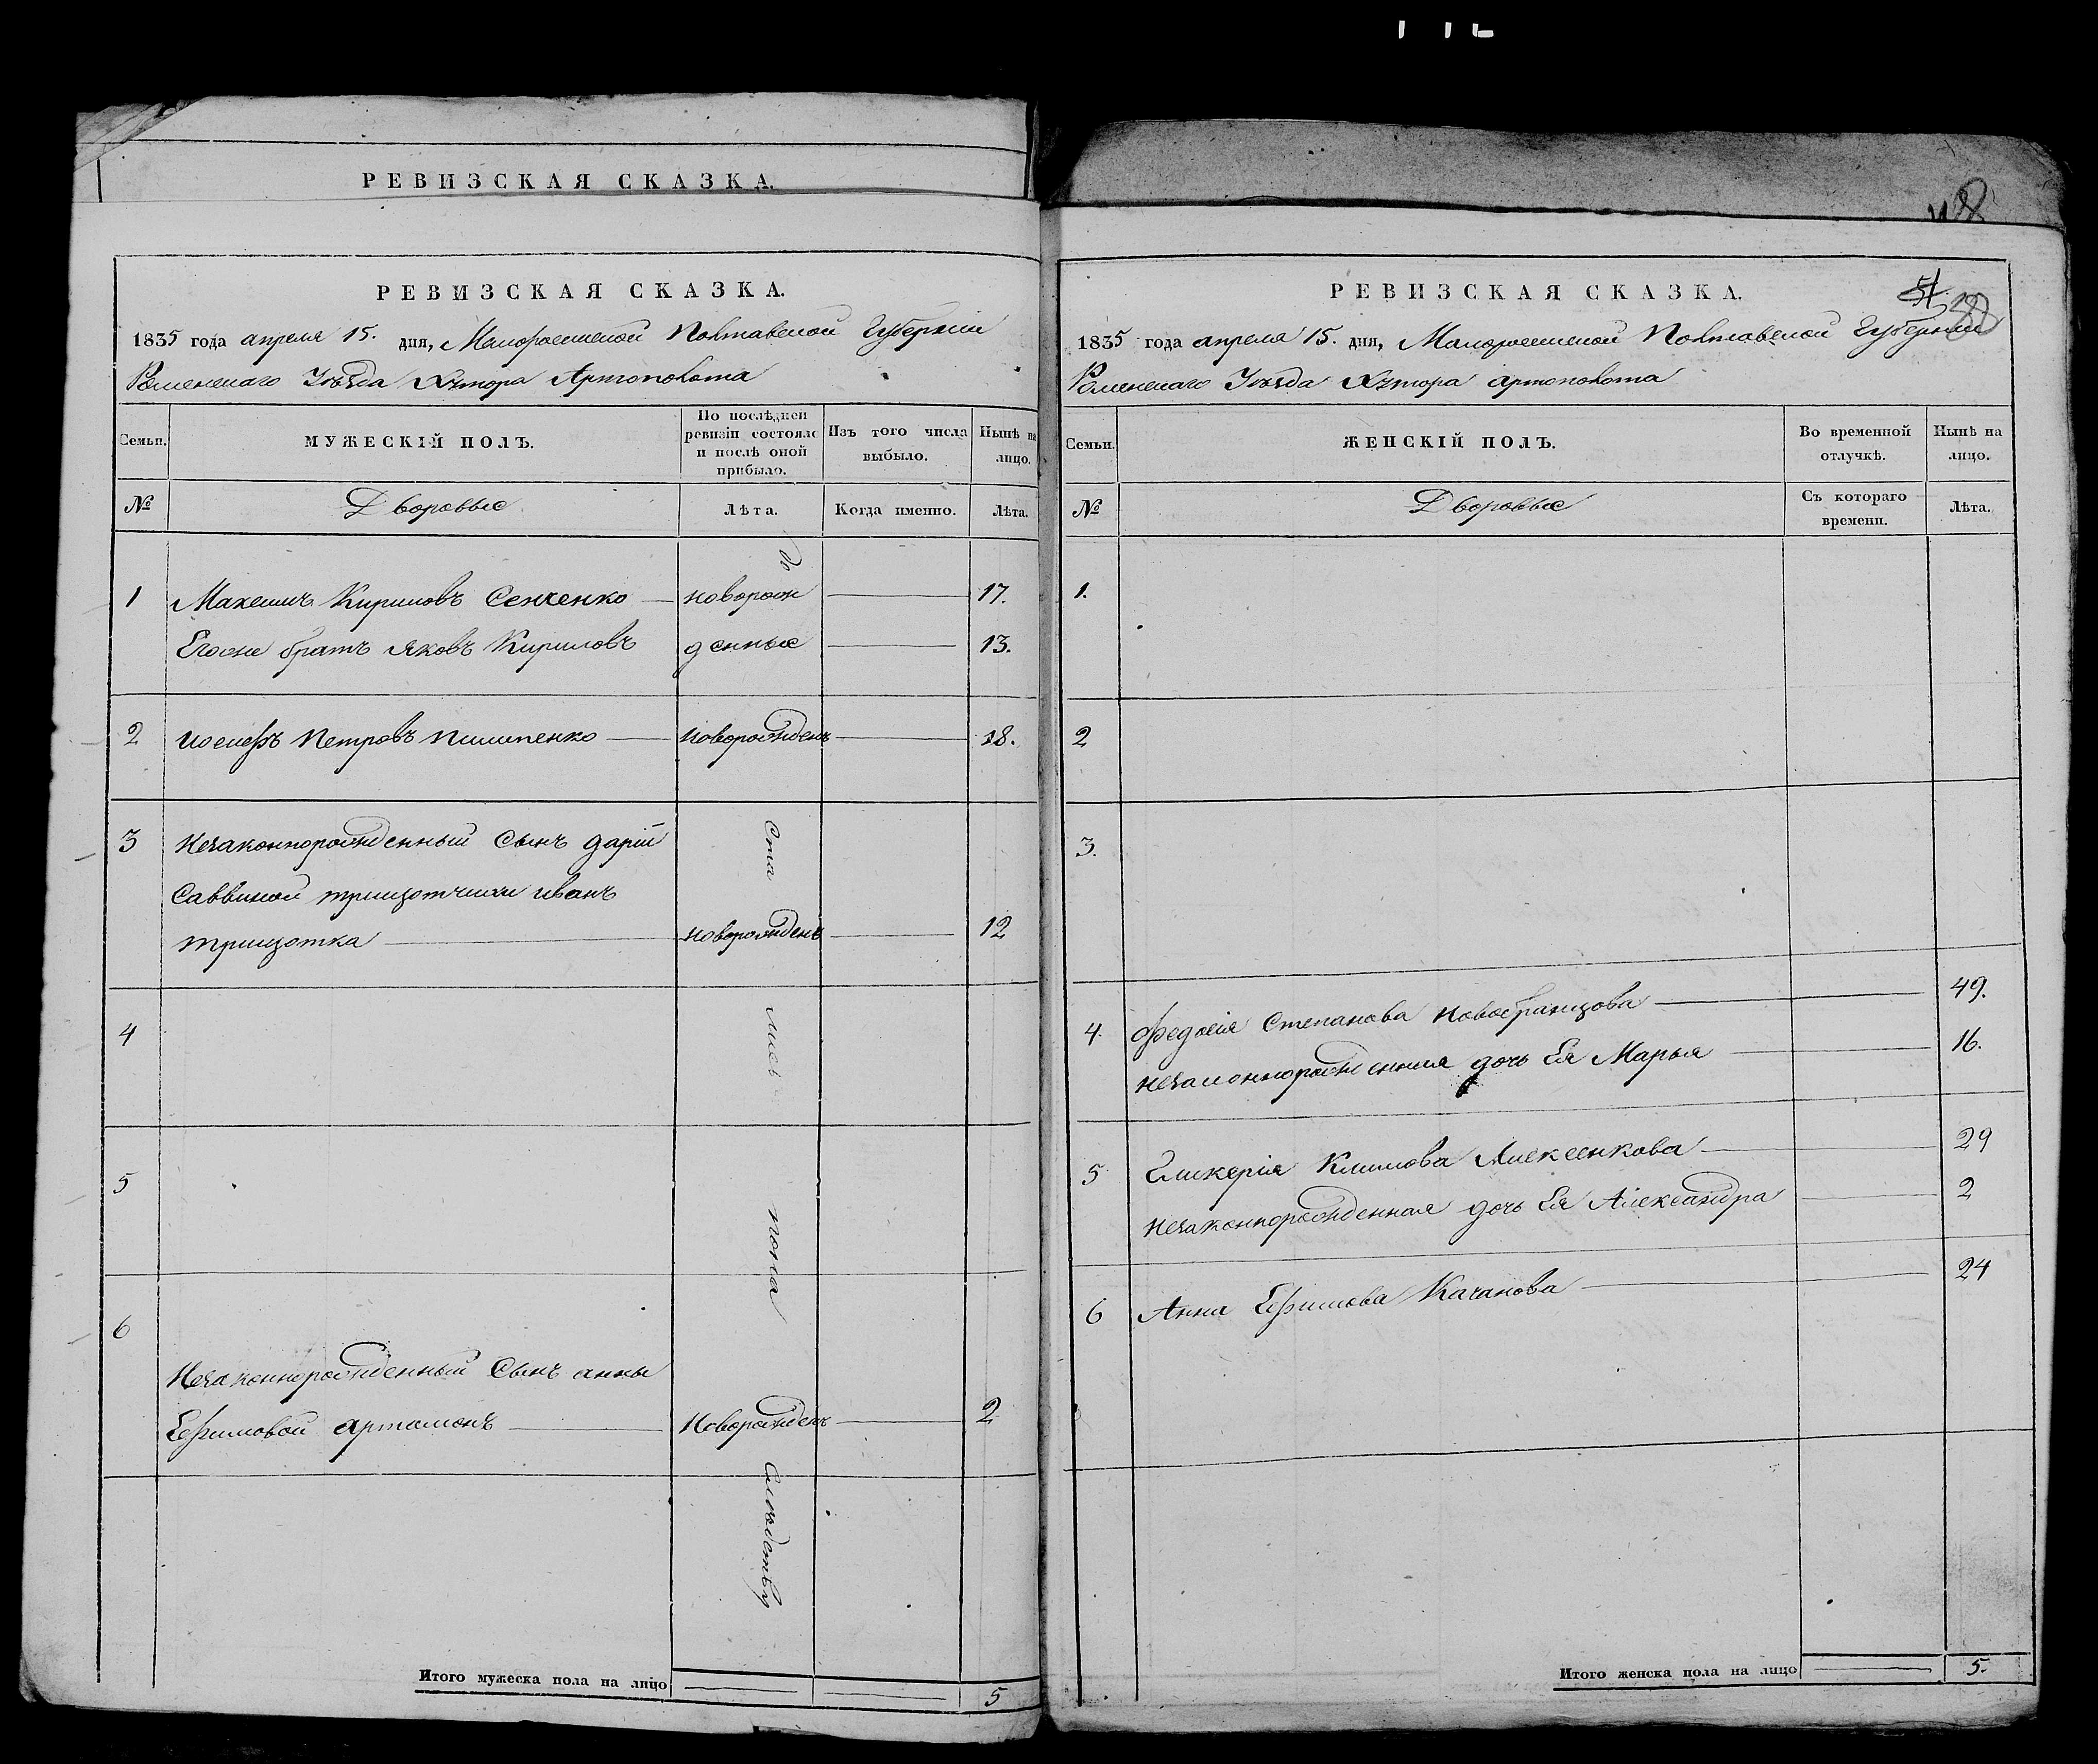 РЕВИЗСКАЯ СКАЗКА.
РЕВИЗСКАЯ СКАЗКА.
1835 года апреля 15. дня, Малоросииской Полтавской Губернии
Роменскаго Уѣзда Хутора Артополота
Семьи. МУЖЕСКІЙ ПОЛЪ. По послѣдней ревизіи состояло и послѣ оной прибыло. Изъ того числа выбыло. Нынѣ на лицо.
№ Дворовые Лѣта. Когда именно. Лѣта.
1 Максимъ Кириловъ Сенченко новорож 17.
Егоже братъ Яковъ Кириловъ денные 13.
2 Иосифъ Петровъ Пилипенко новорожденъ 18.
3 Незаконнорожденный Сынъ дарій
Саввиной иванъ
новорожденъ 12
4
5
6
Незаконнорожденный Сынъ анны
Ефимовой артамонъ Новорожденъ 2
Итого мужеска пола на лицо 5
РЕВИЗСКАЯ СКАЗКА.
1835 года апреля 15. дня, Малоросииской Полтавской Губернии
Роменскаго Уѣзда Хутора артополота
Семьи. ЖЕНСКІЙ ПОЛЪ. Во временной отлучкѣ. Нынѣ на лицо.
№ Дворовые Съ котораго времени. Лѣта.
1.
2
3.
4 Федосія Степанова Новобранцова 49.
незаконнорожденная дочь Ея Марья 16.
5 Гликерія Климова Алексенкова 29
незаконнорожденная дочь Ея Александра 2
6 Анна Ефимова Качанова 24
Итого женска пола на лицо 5.